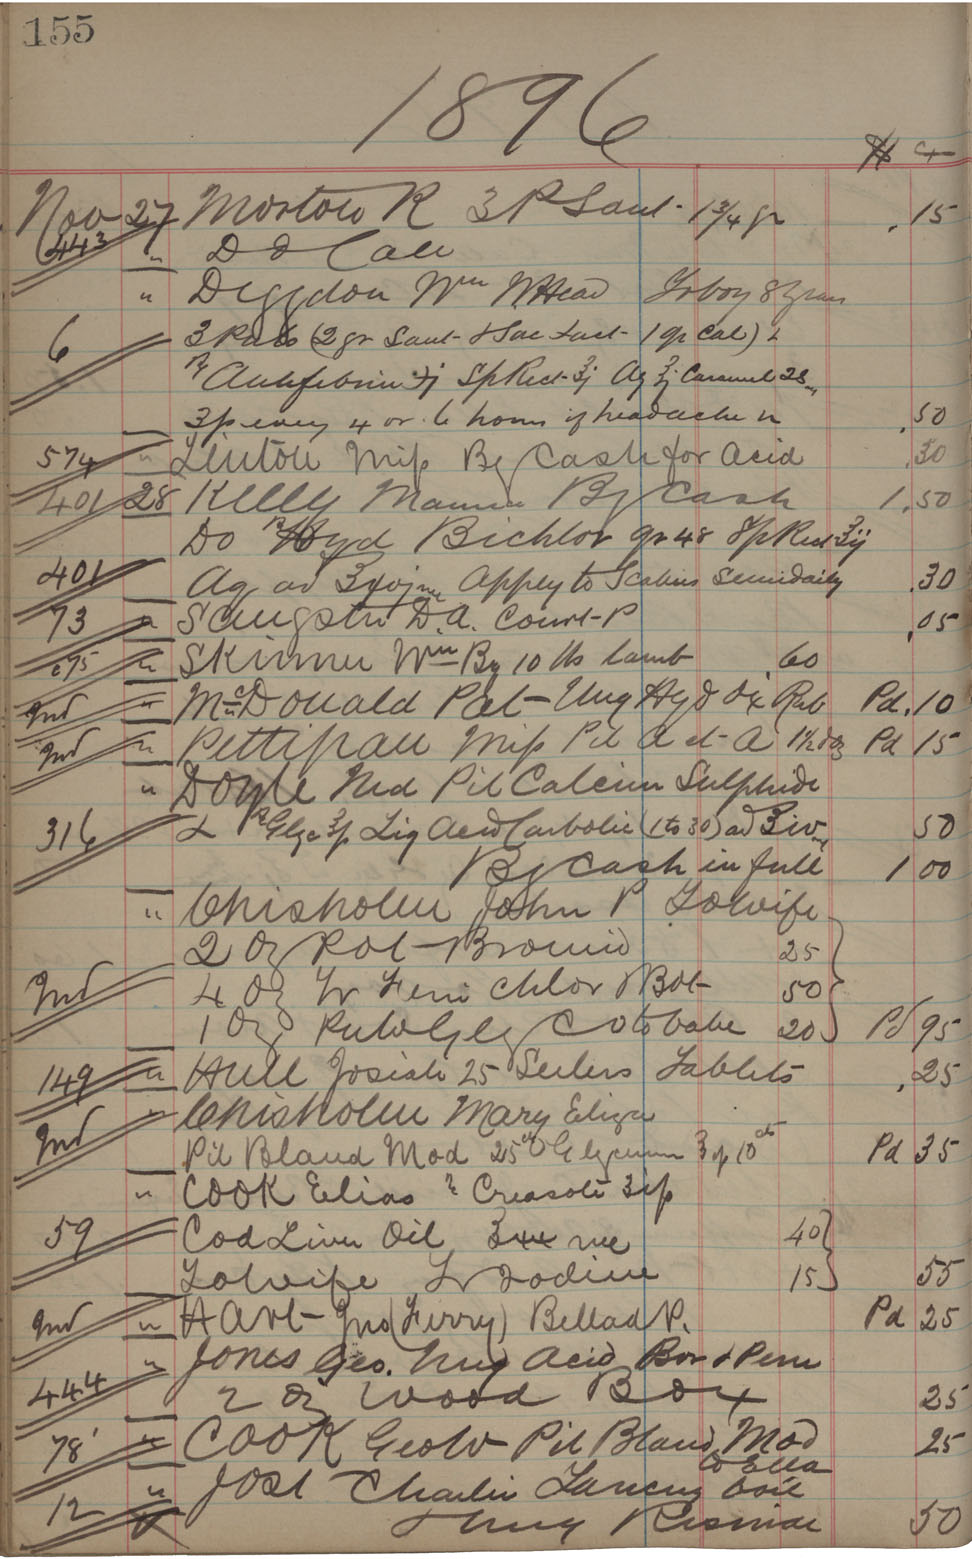 155
1896
$ c
Nov 27 Morton R 3 P Sant- 1 3/4 gr .15
443 " D D Cale
" Deggdon Wm N Head To boy 8 yrs
6 3 Pulvs (2 gr Sant- & Sac Lact- 1 gr Cal) &
℞ Antifebrin ʒj Sp Rect- ℥j Aq ℥j Caramel
every 4 or 6 hours if headache .50
574 " Linton Mrs By Cash for Acid .30
401 28 Kelly By Cash 1.50
Do ℞ Hyd Bichlor gr 48 Sp Rect
401 Aq ad Apply to Scabies Semidaily .30
73 " D.A. Court-P .05
675 " Skinner Wm By 10 lbs lamb 60
Ind " McDonald Pat- Ung Hyd Ox Rub Pd .10
Ind " Pettipau Mrs Pil A et- A 1 1/2 doz Pd 15
" Doyle Ned Pil Calcium Sulphide
316 & Liq Acid Carbolic (1 to 30) ad ℥iv 50
By Cash in full 1 00
" Chisholm John P To Wife
2 Oz Pot- Bromid 25
Ind 4 Oz Tr Ferri Chlor & Bot- 50
1 Oz 20 Pd 95
149 " Hull Josiah 25 Seilers Tablets .25
" Chisholm Mary Eliza
Ind Pil Blaud Mod 25cts Glycerin 10cts Pd 35
" Cook Elias ℞ Creasote
59 Cod Liver Oil 40
To Wife Tr Iodine 15 55
Ind " Hart- Jno (Ferry) Bellad P. Pd 25
" Jones Geo. Ung Acid Bor & Peru
444 2 Oz Wood Box 25
78 " Cook Geo W Pil Blaud Mod 25
to Ella
" Jost Charlie boil
12 Ung Resinae 50